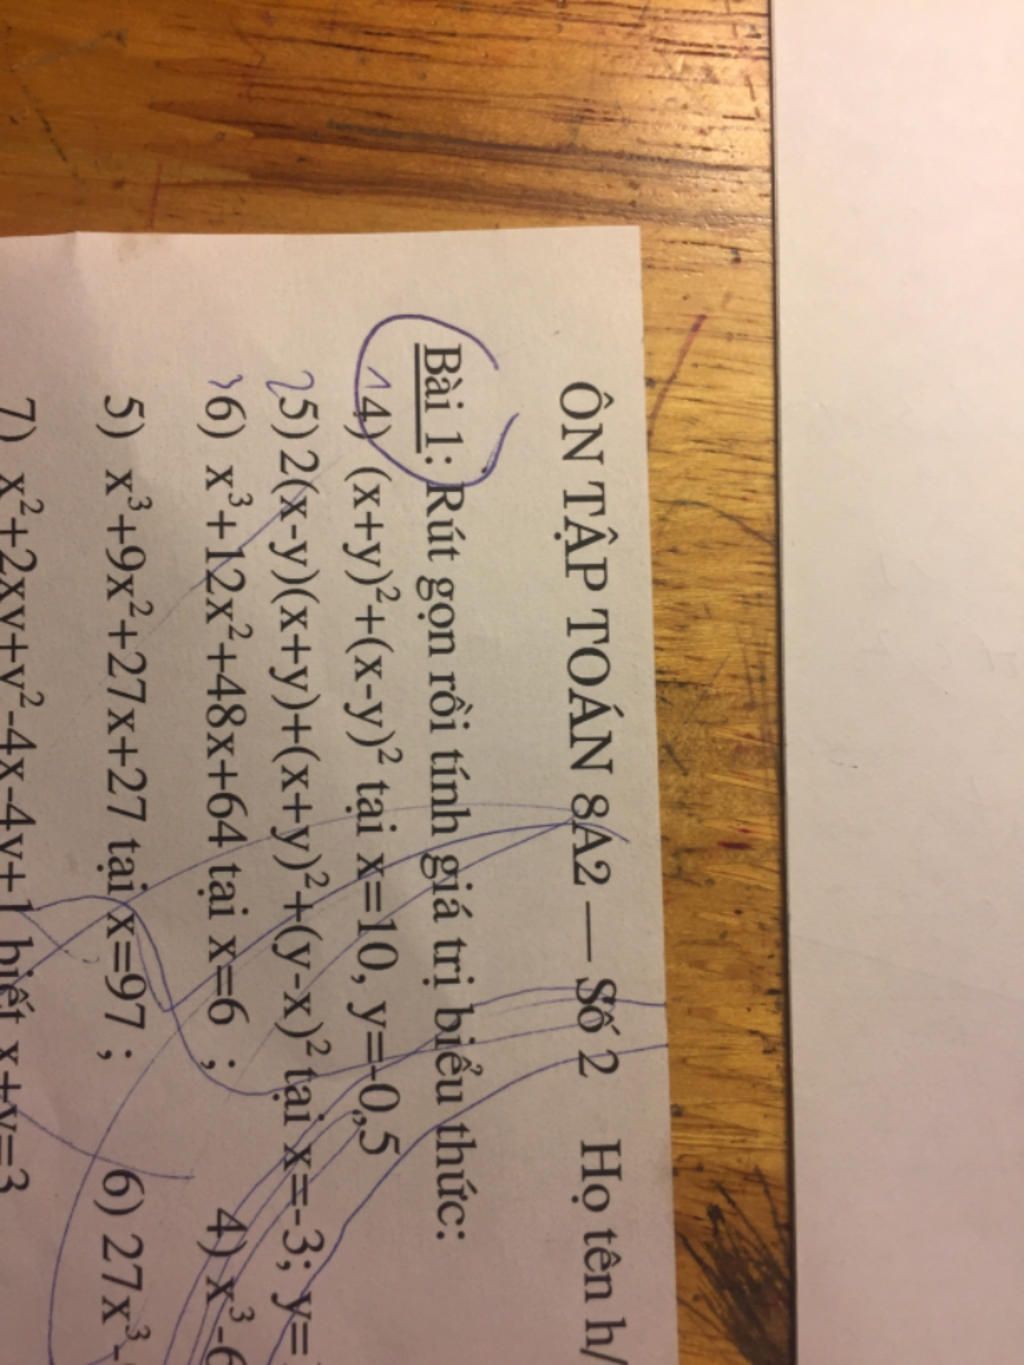 ÔN TẬP TOÁN 8A2 — Số 2 Họ tên h/
Bài 1: Rút gọn rồi tính giá trị biểu thức:
14) (x+y)²+(x-y)² tại x=10, y=-0,5
25) 2(x-y)(x+y)+(x+y)²+(y-x)² tại x=-3; y=
36) x³+12x²+48x+64 tại x=6 ; 4) x³-6
5) x³+9x²+27x+27 tại x=97 ; 6) 27x³-
7) x²+2xy+y²-4x-4y+1 biết x+y=3